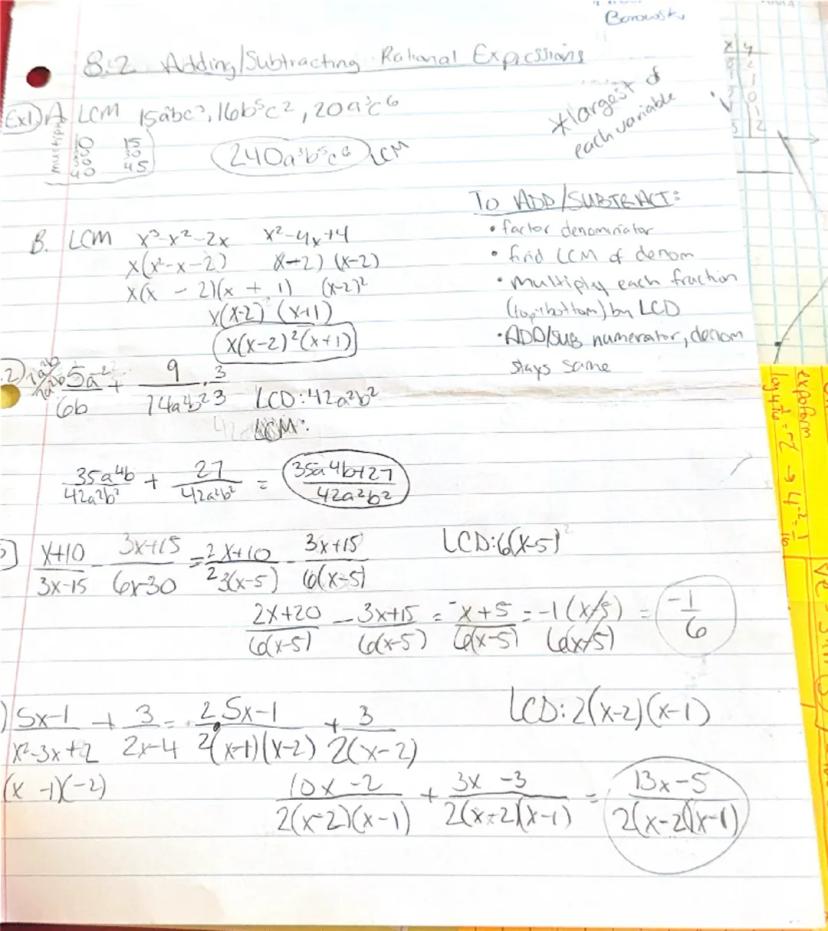 Borowsk
8.2 Adding/Subtracting Rational Expressions
x y
Ex1) A LCM 15a²bc³, 16b⁵c², 20a³c⁶
*largest of
each variable
multiples
10 15
30
30
40 45
240a³b⁵c⁶ LCM
TO ADD/SUBTRACT:
• factor denominator
• find LCM of denom
• multiply each fraction
(top+bottom) by LCD
• ADD/SUB numerator, denom
stays same
B. LCM x³-x²-2x x²-4x+4
x(x²-x-2) (x-2)(x-2)
x(x - 2)(x + 1) (x-2)²
x(x-2) (x+1)
x(x-2)²(x+1)
2) 7a²b/7a²b 5a²/6b + 9/14a²b² · 3/3 LCD: 42a²b²
LCM:
35a⁴b/42a²b² + 27/42a²b² = 35a⁴b+27/42a²b²
x+10/3x-15 - 3x+15/6x-30 = 2 x+10/2 3(x-5) - 3x+15/6(x-5) LCD: 6(x-5)
2x+20/6(x-5) - 3x+15/6(x-5) = -x+5/6(x-5) = -1(x-5)/6(x-5) = -1/6
) 5x-1/x²-3x+2 + 3/2x-4 = 2 5x-1/2(x-1)(x-2) + 3/2(x-2) LCD: 2(x-2)(x-1)
(x -1)(-2)
10x -2/2(x-2)(x-1) + 3x -3/2(x-2)(x-1) = 13x-5/2(x-2)(x-1)